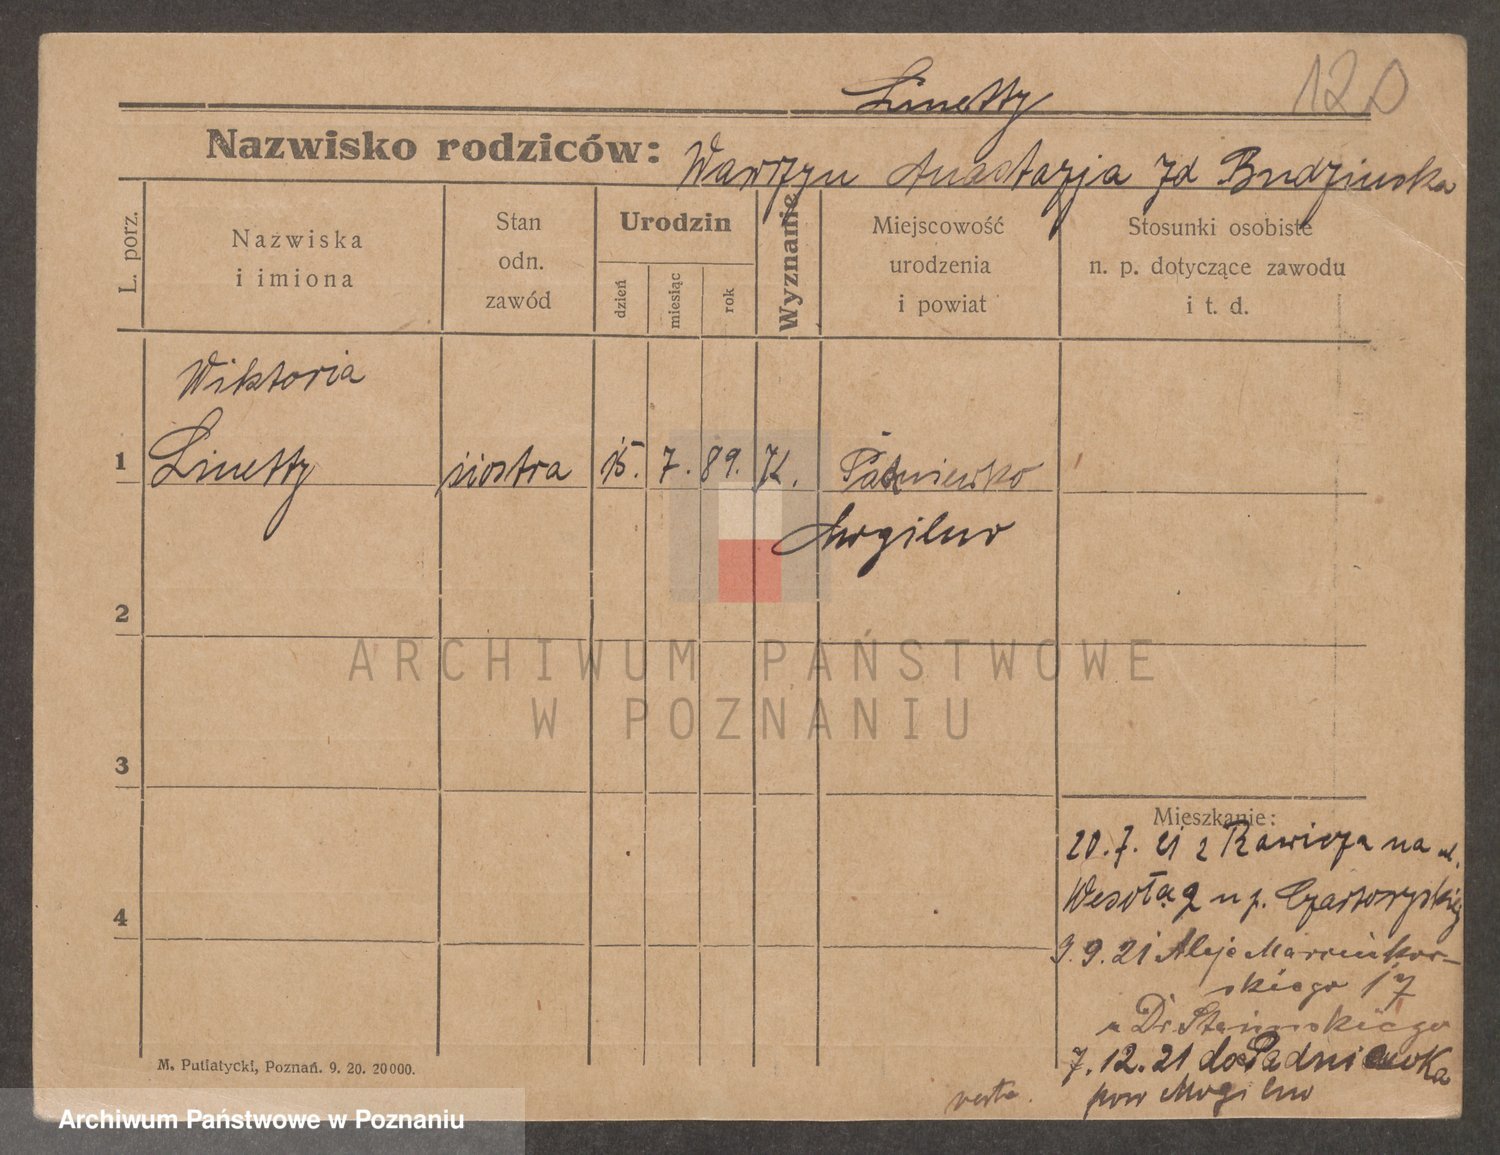 120
Linetty
Nazwisko rodziców: Wawrzyn Anastazja zd Budzinska
L. porz.
Nazwiska
i imiona
Stan
odn.
zawód
Urodzin
dzień
miesiąc
rok
Wyznanie
Miejscowość
urodzenia
i powiat
Stosunki osobiste
n. p. dotyczące zawodu
i t. d.
Wiktoria
1 Linetty siostra 15. 7. 89. K. Padniewko
Mogilno
2
3
4
ARCHIWUM PAŃSTWOWE
W POZNANIU
Mieszkanie:
20.7.21 z Rawicza na ul.
Wesołą 2 u p. Czartoryskiej
9.9.21 Aleje Marcinkow-
skiego 17
u Dr
7.12.21 do Padniewka
pow Mogilno
verte.
M. Putiatycki, Poznań. 9. 20. 20000.
Archiwum Państwowe w Poznaniu